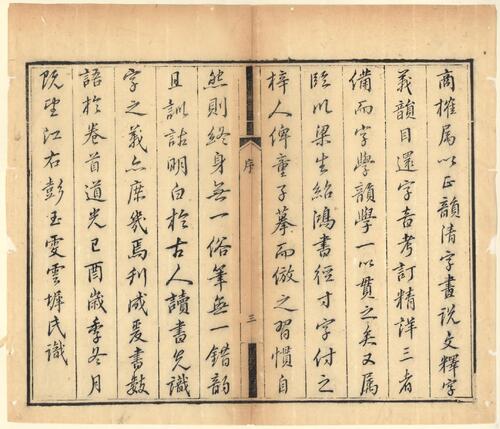 商榷属以正韻清字畫说文釋字
義韻目還字音考訂精詳三者
備而字學韻學一以貫之矣又属
臨川梁生紹鴻書徑寸字付之
梓人俾童子摹而倣之習慣自
序
三
然則終身無一俗筆無一錯韵
且訓詁明白於古人讀書先識
字之義亦庶幾焉刊成爰書數
語於卷首道光己酉歲季冬月
既望江右彭玉雯雲墀氏識